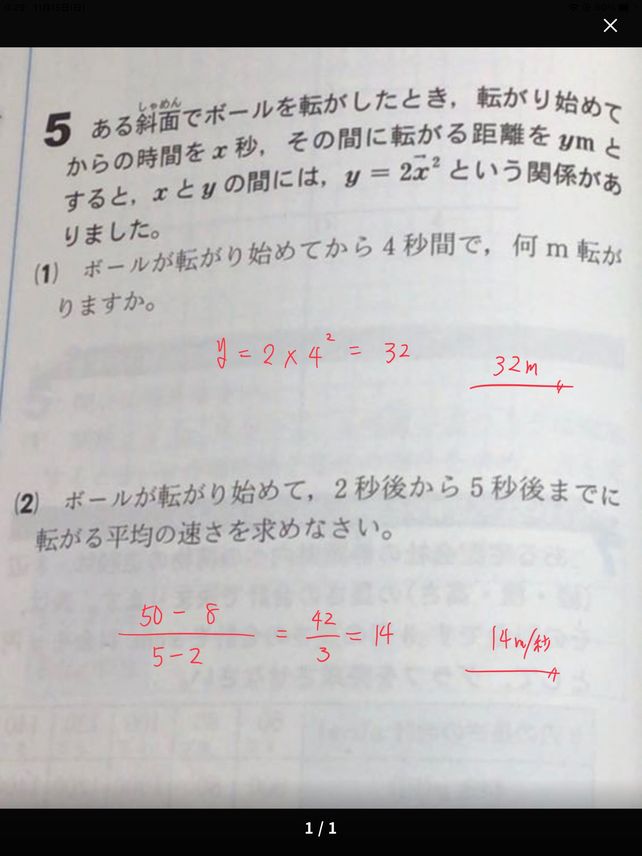 5 ある斜面でボールを転がしたとき，転がり始めて
しゃめん
からの時間を x 秒，その間に転がる距離を ym と
すると，x と y の間には，y = 2x² という関係があ
りました。
(1) ボールが転がり始めてから4秒間で，何m転が
りますか。
y = 2 × 4² = 32
32m
(2) ボールが転がり始めて，2秒後から5秒後までに
転がる平均の速さを求めなさい。
50 - 8
5 - 2
= 42/3 = 14
14m/秒
1 / 1